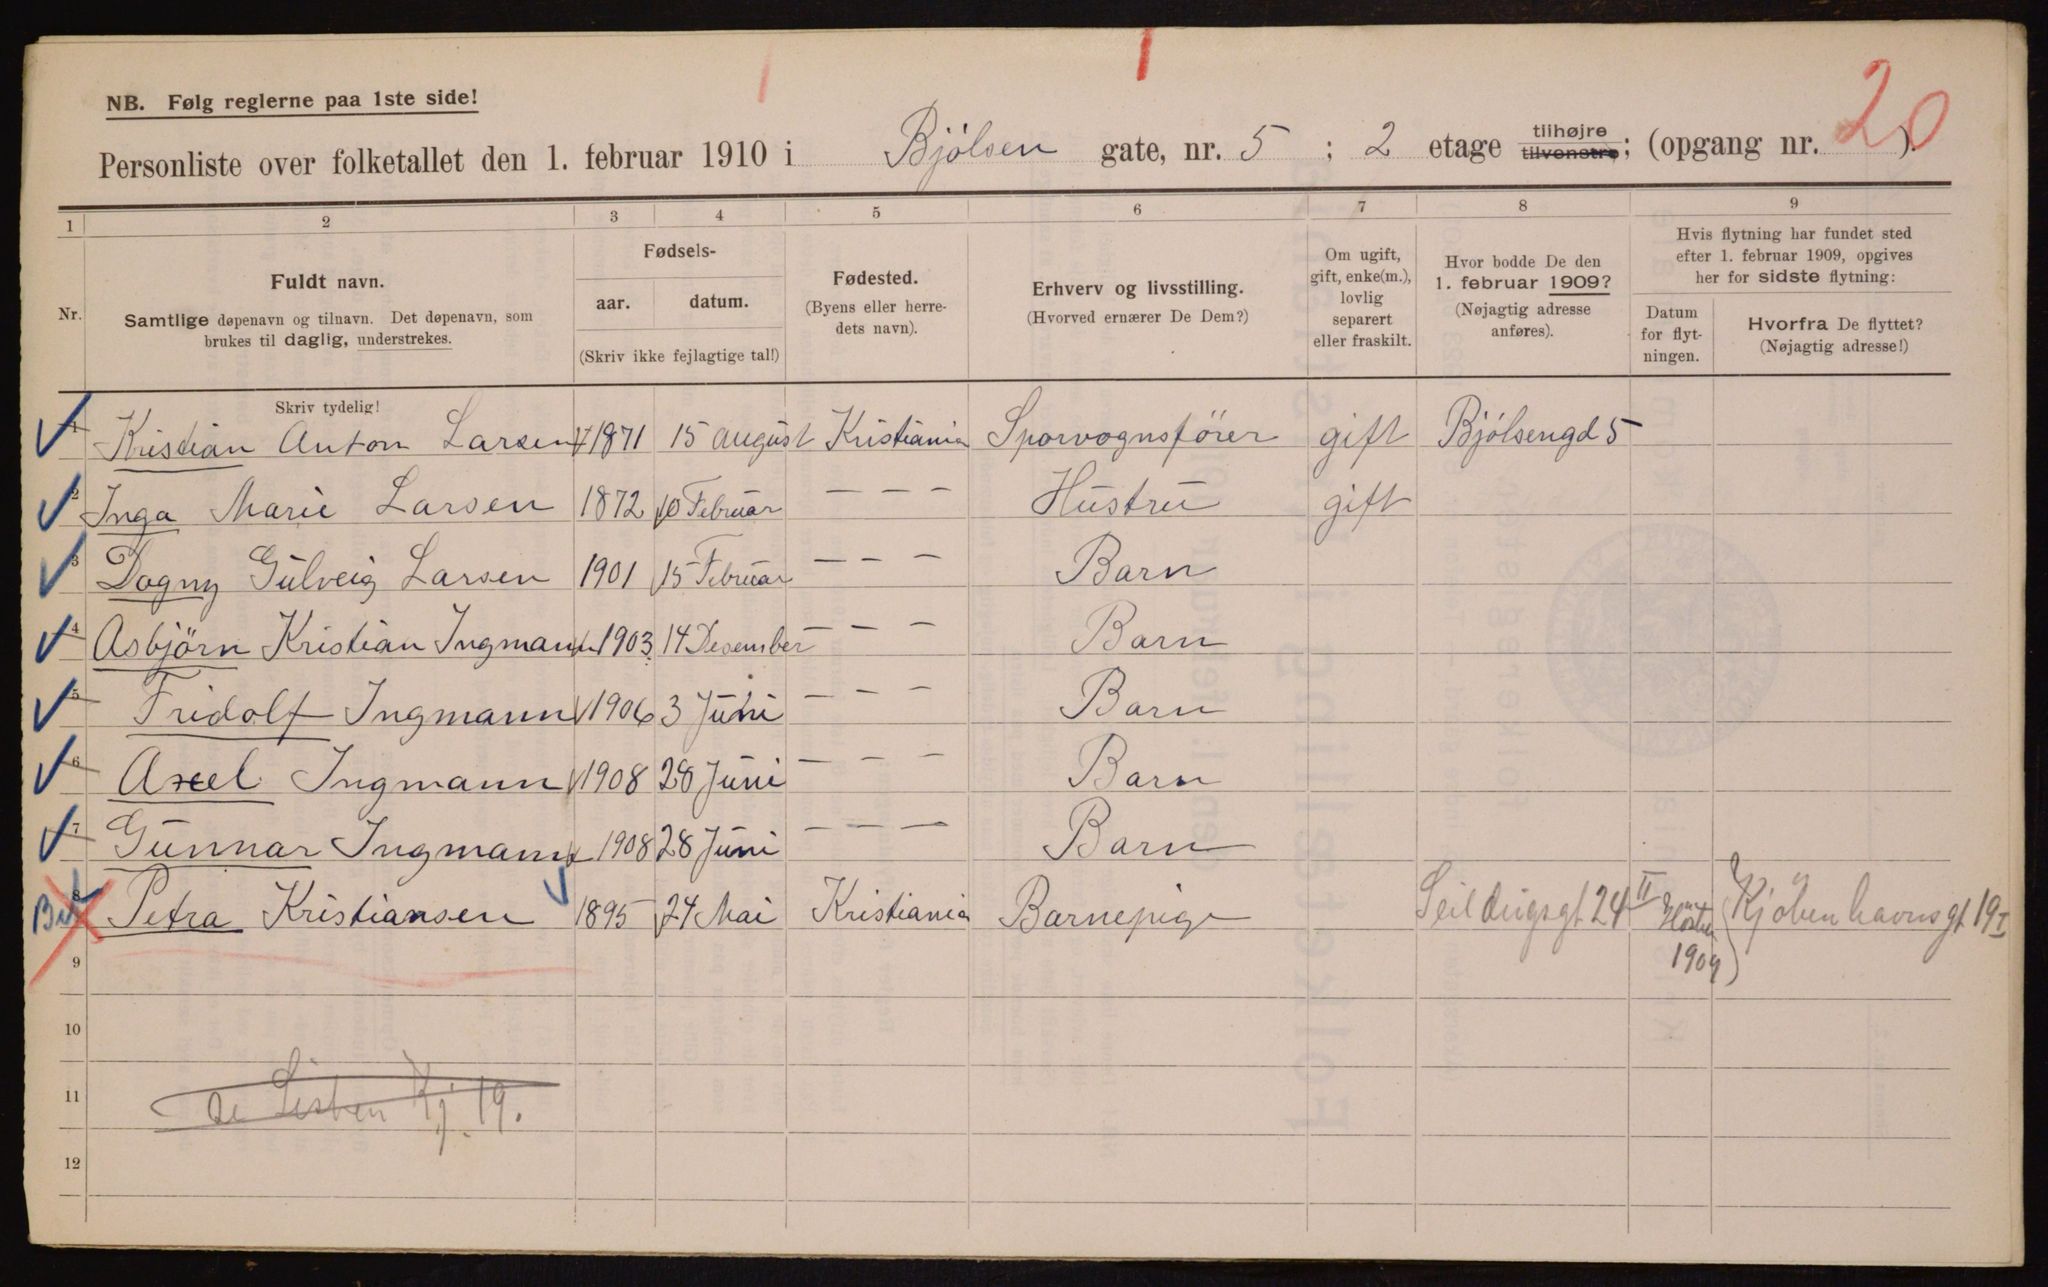 NB. Følg reglerne paa 1ste side!
Personliste over folketallet den 1. februar 1910 i Bjølsen gate, nr. 5 ; 2 etage tilhøjre tilvenstre; (opgang nr. ).
20
1 2 3 4 5 6 7 8 9
Nr.
Fuldt navn.
Samtlige døpenavn og tilnavn. Det døpenavn, som
brukes til daglig, understrekes.
Skriv tydelig!
Fødsels-
aar. datum.
(Skriv ikke fejlagtige tal!)
Fødested.
(Byens eller herre-
dets navn).
Erhverv og livsstilling.
(Hvorved ernærer De Dem?)
Om ugift,
gift, enke(m.),
lovlig
separert
eller fraskilt.
Hvor bodde De den
1. februar 1909?
(Nøjagtig adresse
anføres).
Hvis flytning har fundet sted
efter 1. februar 1909, opgives
her for sidste flytning:
Datum
for flyt-
ningen.
Hvorfra De flyttet?
(Nøjagtig adresse!)
1 Kristian Anton Larsen 1871 15 august Kristiania Sporvognsförer gift Bjölsengd 5
2 Inga Marie Larsen 1872 10 Februar — — — Hustru gift
3 Dagny Gulveig Larsen 1901 15 Februar — — — Barn
4 Asbjörn Kristian Ingmann 1903 14 Desember — — — Barn
5 Fridolf Ingmann 1906 3 Juni — — — Barn
6 Axel Ingmann 1908 28 Juni — — — Barn
7 Gunnar Ingmann 1908 28 Juni — — — Barn
8 Petra Kristiansen 1895 24 Mai Kristiania Barnepige Seildugsgt 24 II Høsten 1909 Kjöbenhavnsgt 19 I
9
10
11 Se Listen Kj. 19.
12